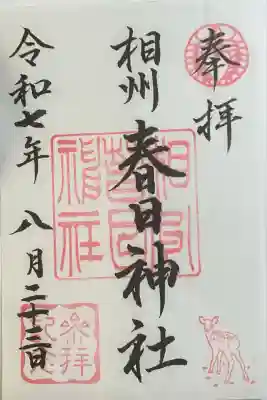 奉拝
相州 春日神社
令和七年 八月二十三日
相州
春日
神社
参拝
記念